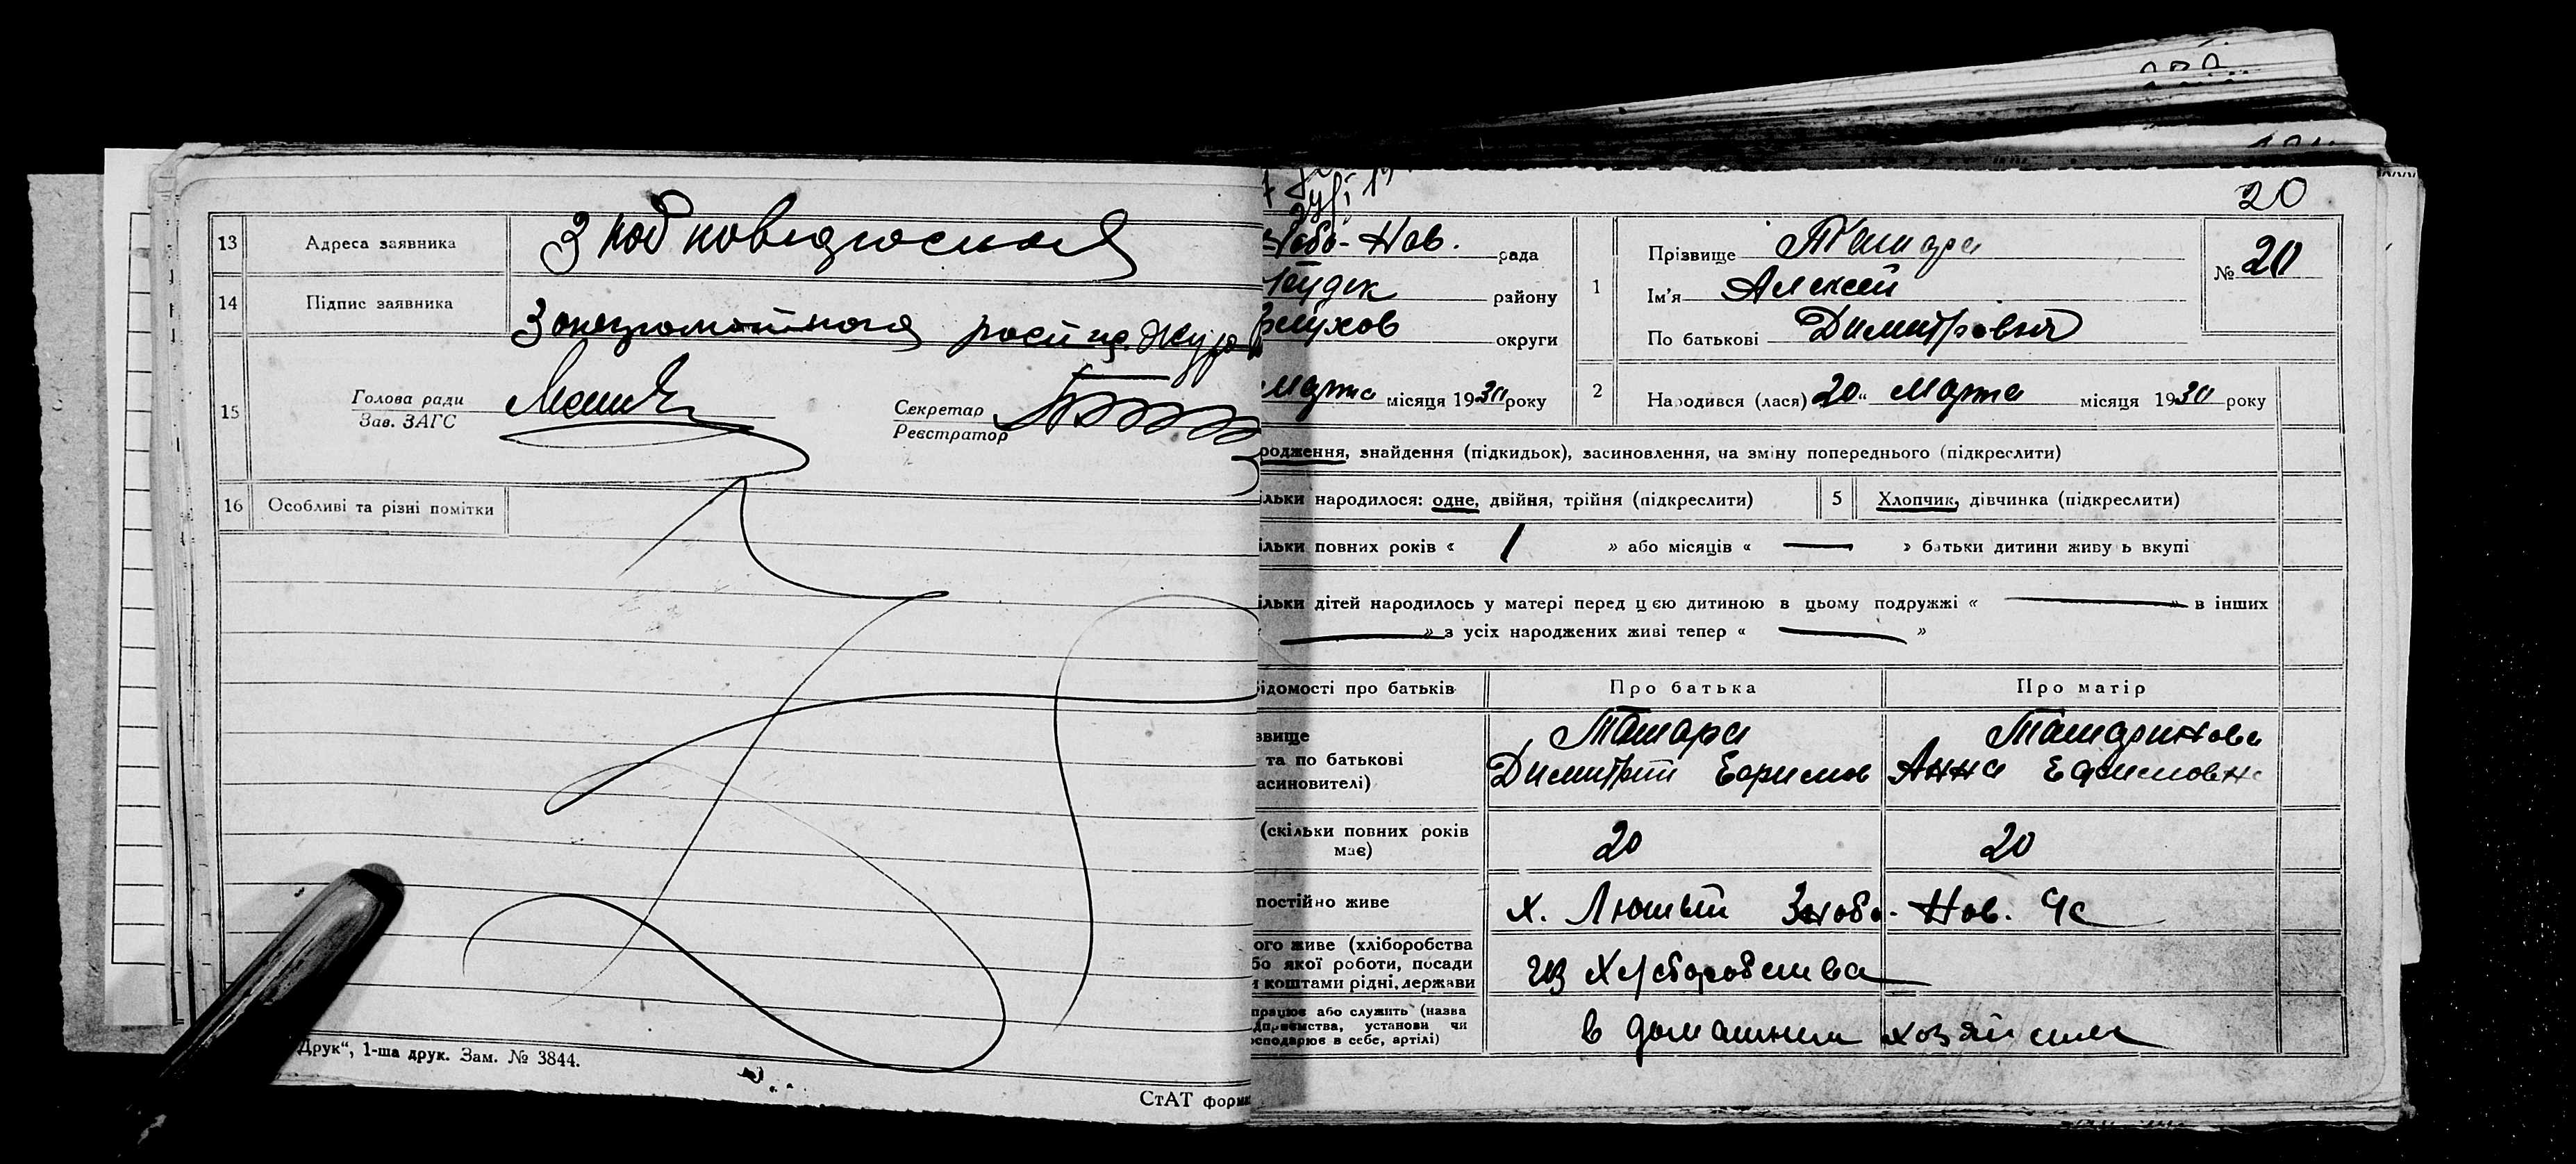 13 Адреса заявника
14 Підпис заявника
15 Голова ради
Зав. ЗАГС
Секретар
Реєстратор
16 Особливі та різні помітки
Друк“, 1-ша друк. Зам. № 3844.
СтАТ форма
20
Нов. рада
району
округи
Марта місяця 1930 року
1 Прізвище Татара
Ім'я Алексей
По батькові Димитрович
№ 20
2 Народився (лася) 20 „ Марта місяця 1930 року
родження, знайдення (підкидьок), засиновлення, на зміну попереднього (підкреслити)
ільки народилося: одне, двійня, трійня (підкреслити) 5 Хлопчик, дівчинка (підкреслити)
ільки повних років « 1 » або місяців « — » батьки дитини живу ь вкупі
ільки дітей народилось у матері перед цєю дитиною в цьому подружжі « — » в інших
— » з усіх народжених живі тепер « — »
ідомості про батьків Про батька Про матір
звище Татара Татаринова
та по батькові Димитрий Ефимов Анна Ефимовна
асиновителі)
(скільки повних років має) 20 20
постійно живе х. Лютый Знобо-Нов. Чс
ого живе (хліборобства
бо якої роботи, посади
и коштами рідні, держави из Хлеборобства
працює або служить (назва
дприємства, установи чи
осподарює в себе, артілі) в домашнем хозяйстве